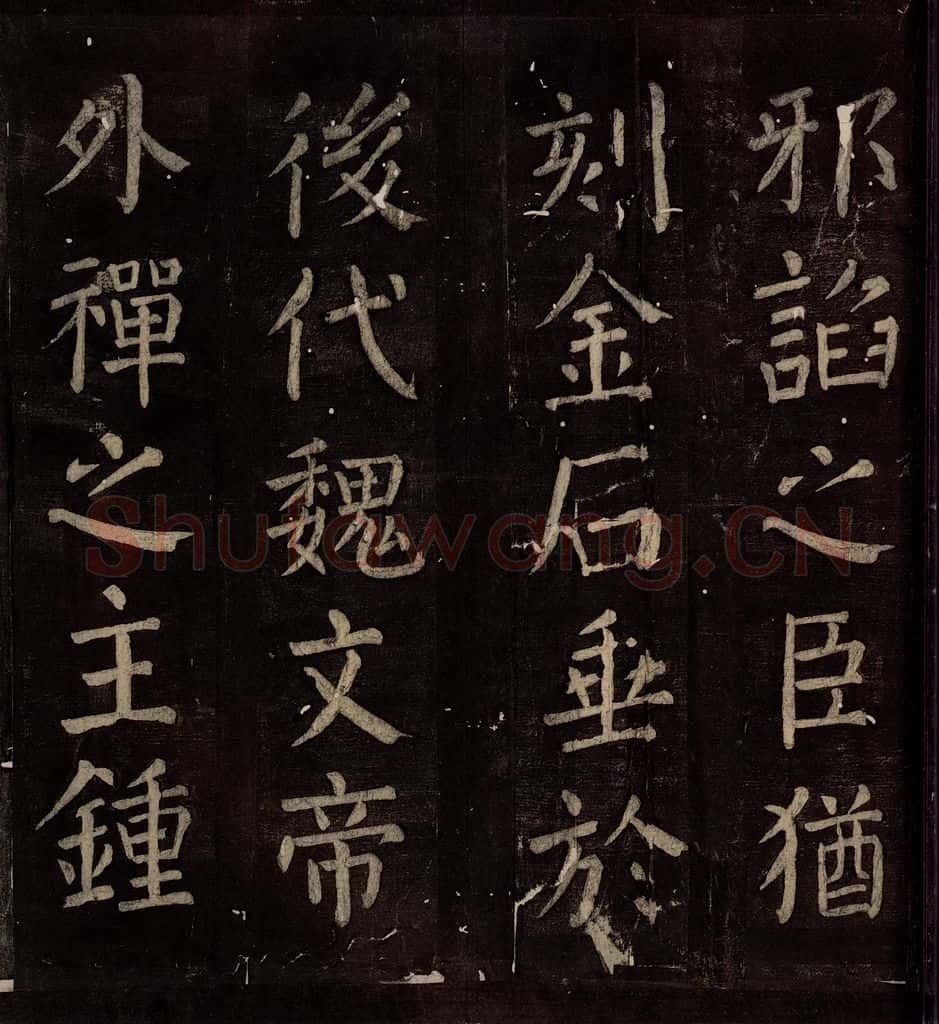 邪諂之臣猶
刻金石垂於
後代魏文帝
外禪之主鍾
Shufawang.CN